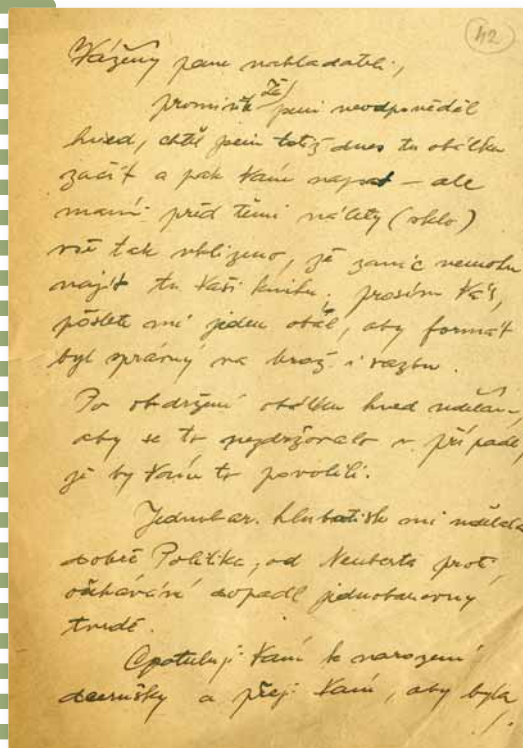 42
Vážený pane nakladateli,
promiňte že jsem neodpověděl
hned, chtěl jsem totiž dnes tu obálku
začít a pak Vám napsat – ale
mám před těmi nálety (sklo)
vše tak uklizeno, že zanic nemohu
najít tu Vaši knihu, prosím Vás,
pošlete mi jeden obál, aby formát
byl správný na brož. i vazbu.
Po obdržení obálku hned udělám,
aby se to nezdržovalo v případě,
že by Vám to povolili.
Jednobar. hlubotisk mi udělala
dobře Politika, od Neuberta proti
očekávání dopadl jednobarevný
tvrdě.
Gratuluji Vám k narození
dcerušky a přeji Vám, aby byla
./.